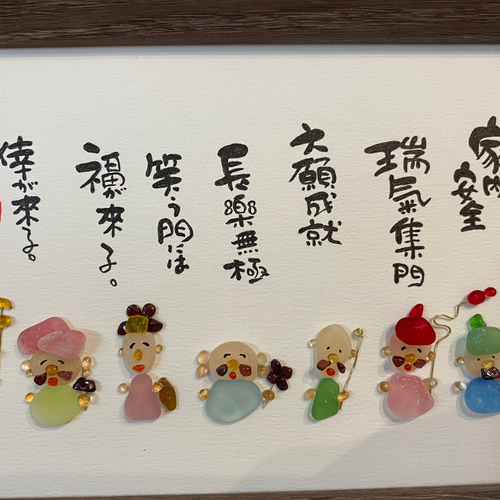 家内安全
瑞氣集門
大願成就
長樂無極
笑う門は
福が来る。
倖が来る。